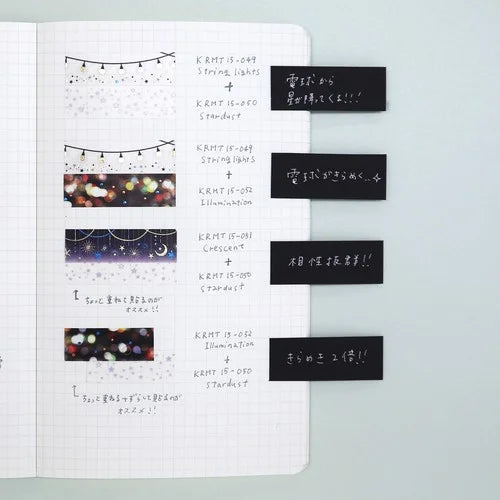 KRMT 15-049
String lights
+
KRMT 15-050
Stardust
電球から
星が降ってくる!!!
KRMT 15-049
String lights
+
KRMT 15-052
Illumination
電球がきらめく...
KRMT 15-051
Crescent
+
KRMT 15-050
Stardust
相性抜群!!
ちょっと重ねて貼るのが
オススメ!!
KRMT 15-052
Illumination
+
KRMT 15-050
Stardust
きらめき2倍!!
ちょっと重ねる→ずらして貼るのが
オススメ!!